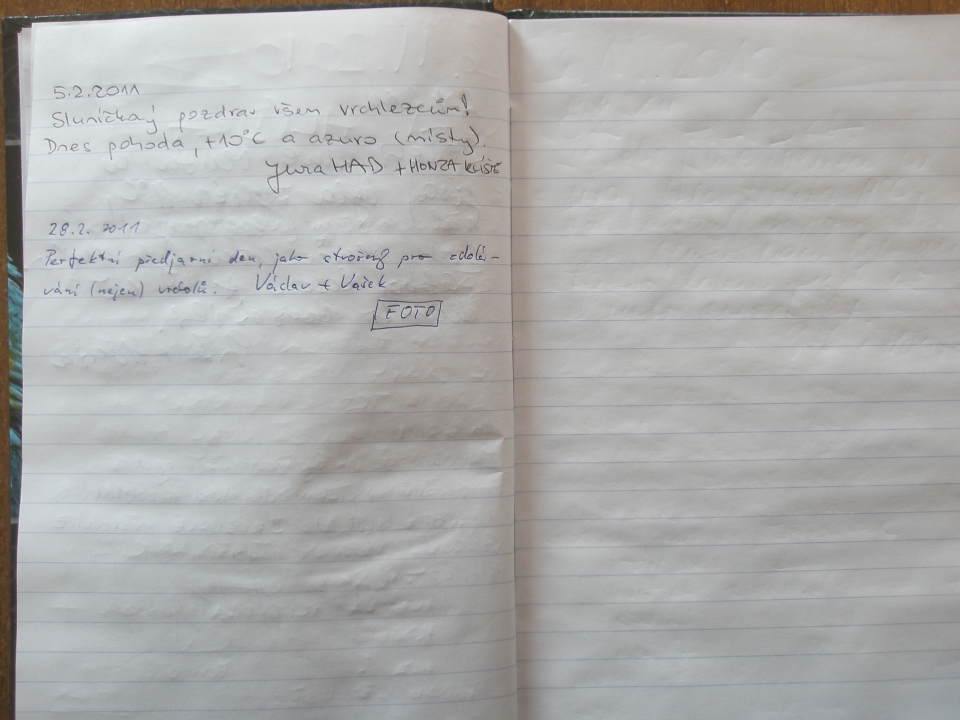 5.2.2011
Sluníčkaý pozdrav všem vrchlezcům!
Dnes pohoda, +10°C a azuro (místy).
Jura HAD + HONZA KLÍŠTĚ
28.2.2011
Perfektní předjarní den, jako stvořený pro zdolá-
vání (nejen) vrcholů. Václav + Vašek
FOTO